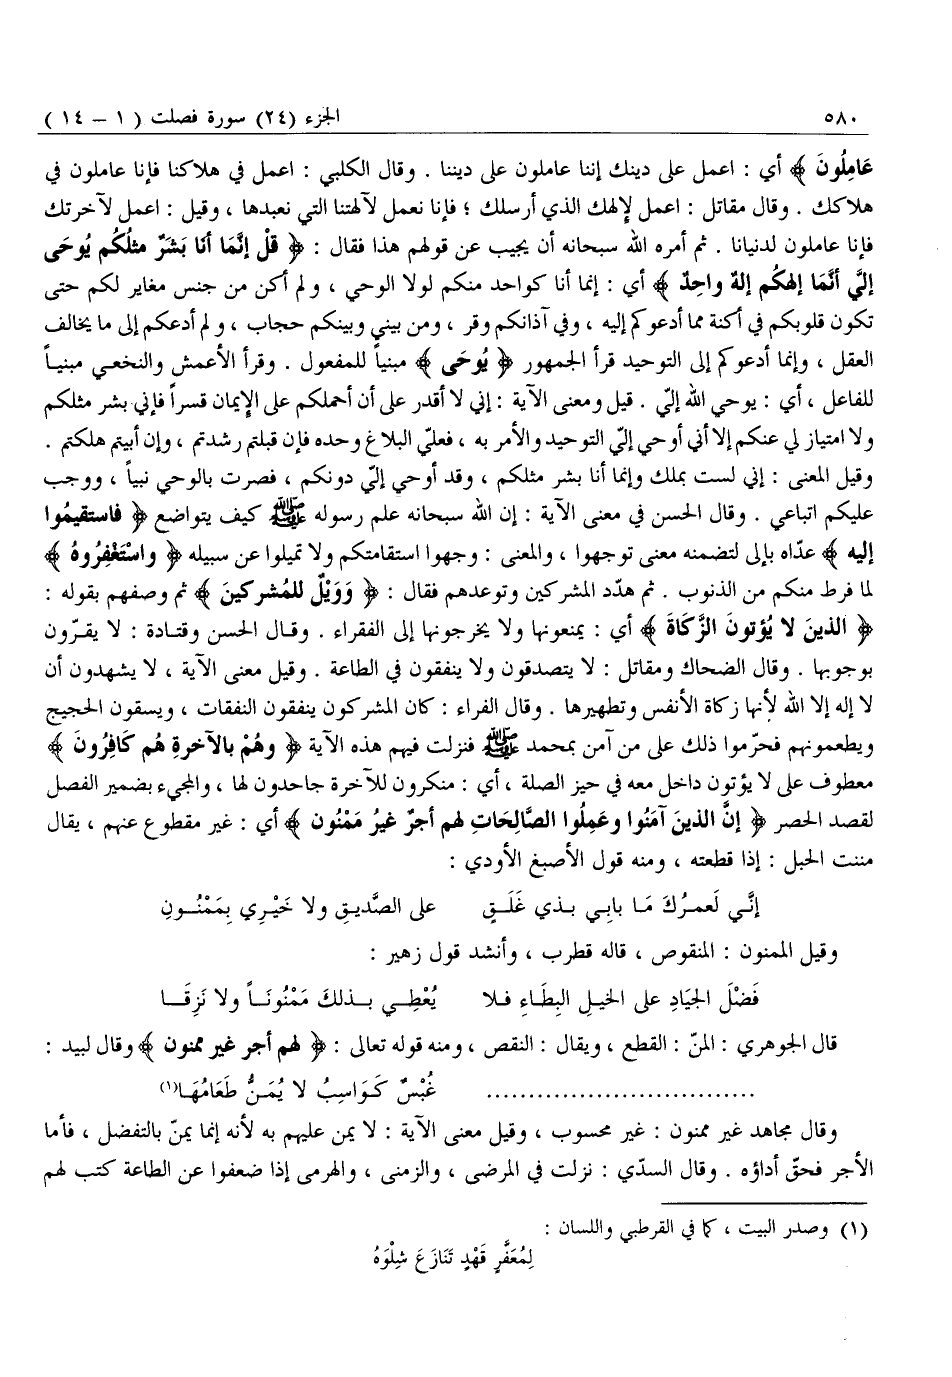 ٥٨٠ الجزء (٢٤) سورة فصلت ( ١ – ١٤ )
عَامِلُونَ ﴾ أي : اعمل على دينك إننا عاملون على ديننا . وقال الكلبي : اعمل في هلاكنا فإنا عاملون في
هلاكك . وقال مقاتل : اعمل لإلهك الذي أرسلك ؛ فإنا نعمل لآلهتنا التي نعبدها ، وقيل : اعمل لآخرتك
فإنا عاملون لدنيانا . ثم أمره الله سبحانه أن يجيب عن قولهم هذا فقال : ﴿ قلْ إنَّما أنا بَشَرٌ مثلُكُم يُوحَى
إليَّ أنَّمَا إلهكُم إلهٌ واحِدٌ ﴾ أي : إنما أنا كواحد منكم لولا الوحي ، ولم أكن من جنس مغاير لكم حتى
تكون قلوبكم في أكنة مما أدعوكم إليه ، وفي آذانكم وقر ، ومن بيني وبينكم حجاب ، ولم أدعكم إلى ما يخالف
العقل ، وإنما أدعوكم إلى التوحيد قرأ الجمهور ﴿ يُوحَى ﴾ مبنياً للمفعول . وقرأ الأعمش والنخعي مبنيـاً
للفاعل ، أي : يوحي الله إليّ . قيل ومعنى الآية : إني لا أقدر على أن أحملكم على الإيمان قسراً فإني بشر مثلكم
ولا امتياز لي عنكم إلا أني أوحي إليّ التوحيد والأمر به ، فعليّ البلاغ وحده فإن قبلتم رشدتم ، وإن أبيتم هلكتم .
وقيل المعنى : إني لست بملك وإنما أنا بشر مثلكم ، وقد أوحي إليّ دونكم ، فصرت بالوحي نبياً ، ووجب
عليكم اتباعي . وقال الحسن في معنى الآية : إن الله سبحانه علم رسوله ﷺ كيف يتواضع ﴿ فاستقيمُوا
إليه ﴾ عدّاه بإلى لتضمنه معنى توجهوا ، والمعنى : وجهوا استقامتكم ولا تميلوا عن سبيله ﴿ واسْتَغْفِرُوهُ ﴾
لما فرط منكم من الذنوب . ثم هدّد المشركين وتوعدهم فقال : ﴿ وَوَيْلٌ للمُشركينَ ﴾ ثم وصفهم بقوله :
﴿ الذينَ لا يُؤتونَ الزَّكَاةَ ﴾ أي : يمنعونها ولا يخرجونها إلى الفقراء . وقـال الحسن وقتـادة : لا يقـرّون
بوجوبها . وقال الضحاك ومقاتل : لا يتصدقون ولا ينفقون في الطاعة . وقيل معنى الآية ، لا يشهدون أن
لا إله إلا الله لأنها زكاة الأنفس وتطهيرها . وقال الفراء : كان المشركون ينفقون النفقات ، ويسقون الحجيج
ويطعمونهم فحرّموا ذلك على من آمن بمحمد ﷺ فنزلت فيهم هذه الآية ﴿ وهُمْ بالآخرةِ هُم كَافِرُونَ ﴾
معطوف على لا يؤتون داخل معه في حيز الصلة ، أي : منكرون للآخرة جاحدون لها ، والمجيء بضمير الفصل
لقصد الحصر ﴿ إنَّ الذينَ آمَنُوا وعَمِلُوا الصَّالِحَاتِ لهم أجرٌ غيرُ مَمْنُون ﴾ أي : غير مقطوع عنهم ، يقال
مننت الحبل : إذا قطعته ، ومنه قول الأصبغ الأودي :
إنَّـي لَعمرُكَ مَـا بابِـي بـذي غَلَـقٍ على الصَّديـقِ ولا خَيْـرِي بِمَمْنُـونِ
وقيل الممنون : المنقوص ، قاله قطرب ، وأنشد قول زهير :
فَضْلَ الجَيَادِ على الخيـلِ البِطَـاءِ فـلا يُعْطِـي بـذلكَ مَمْنُونَـاً ولا نَزِقَـا
قال الجوهري : المنّ : القطع ، ويقال : النقص ، ومنه قوله تعالى : ﴿ لهم أجر غير ممنون ﴾ وقال لبيد :
................................ غُبْسٌ كَـوَاسِبُ لا يُمَـنُّ طَعَامُهَـا(١)
وقال مجاهد غير ممنون : غير محسوب ، وقيل معنى الآية : لا يمن عليهم به لأنه إنما يمنّ بالتفضل ، فأما
الأجر فحقّ أداؤه . وقال السدّي : نزلت في المرضى ، والزمنى ، والهرمى إذا ضعفوا عن الطاعة كتب لهم
(١) وصدر البيت ، كما في القرطبي واللسان :
لِمُعَفَّرٍ قَهْدٍ تَنَازَعَ شِلْوَهُ